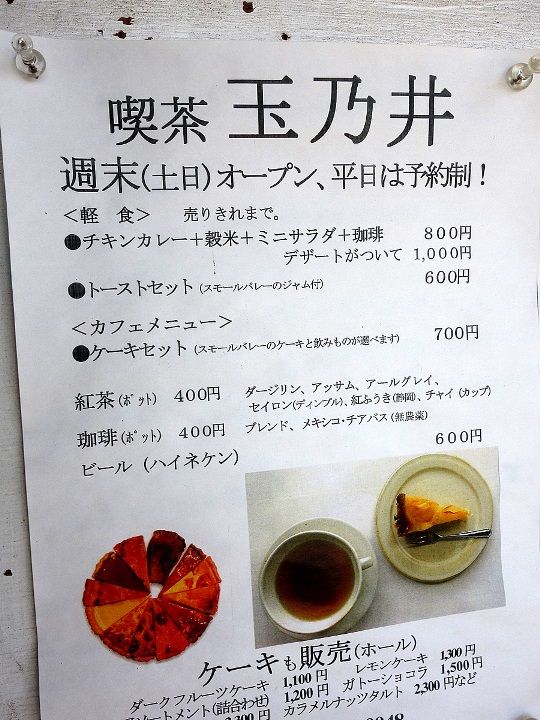 喫茶 玉乃井
週末(土日)オープン、平日は予約制！
＜軽 食＞ 売りきれまで。
●チキンカレー＋穀米＋ミニサラダ＋珈琲 800円
デザートがついて 1,000円
●トーストセット (スモールバレーのジャム付) 600円
＜カフェメニュー＞
●ケーキセット (スモールバレーのケーキと飲みものが選べます) 700円
紅茶(ポット) 400円 ダージリン、アッサム、アールグレイ、
セイロン(ディンブル)、紅ふうき(静岡)、チャイ(カップ)
珈琲(ポット) 400円 ブレンド、メキシコ・チアパス(無農薬)
ビール (ハイネケン) 600円
ケーキも販売(ホール)
ダークフルーツケーキ 1,100円 レモンケーキ 1,300円
ソートメント(詰合わせ) 1,200円 ガトーショコラ 1,500円
2,300円 カラメルナッツタルト 2,300円など